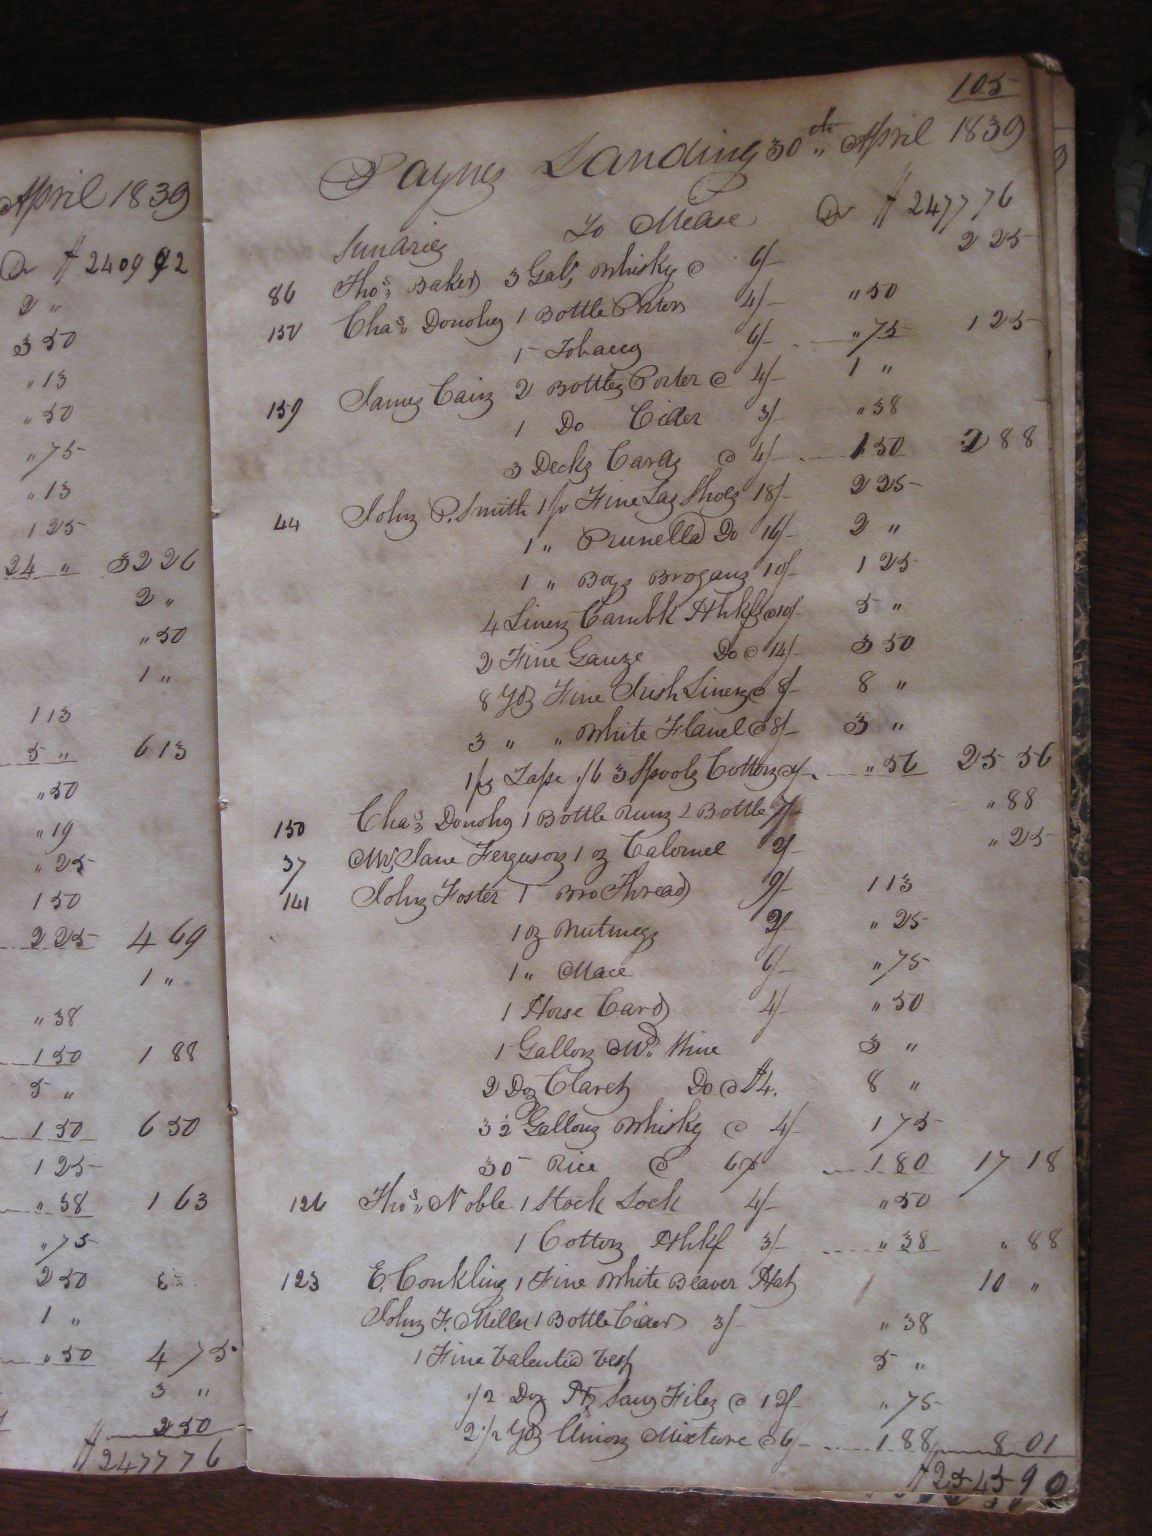 April 1839
Dr $2409 92
2 "
3 50
" 13
" 50
" 75
" 13
1 25
24 " 32 26
2 "
" 50
1 "
1 13
5 " 6 13
" 50
" 19
" 25
1 50
2 25 4 69
1 "
" 38
1 50 1 88
5 "
1 50 6 50
1 25
" 38 1 63
" 75
2 50
1 "
" 50 4 75
3 "
2 50
$2477 76
105
Paynes Landing 30th April 1839
Sundries To Mdse Dr $2477 76
86 Thos Baker 3 Gals Whisky @ 6/- 2 25
150 Chas Donoho 1 Bottle Porter 4/- " 50
1 Tobacco 6/- " 75 1 25
159 James Cain 2 Bottles Porter @ 4/- 1 "
1 Do Cider 3/- " 38
3 Decks Cards @ 4/- 1 50 2 88
44 John P. Smith 1 pr Fine Shoes 18/- 2 25
1 " Prunella Do 16/- 2 "
1 " Boys Brogans 10/- 1 25
4 Linen Cambk Hhkfs @ 10/- 5 "
2 Fine Gauze Do @ 14/- 3 50
8 Yds Fine Irish Linen @ 8/- 8 "
3 " " White Flanel @ 8/- 3 "
3 Spools Cotton " 56 25 56
150 Chas Donoho 1 Bottle Rum 1 Bottle 7/- " 88
37 Mrs Jane Ferguson 1 oz Calomel 2/- " 25
141 John Foster 1 Thread 9/- 1 13
1 oz Nutmegs 2/- " 25
1 " Mace 6/- " 75
1 Horse Card 4/- " 50
1 Gallon Md. Wine 3 "
2 Doz Claret Do @ $4. 8 "
3 1/2 Gallons Whisky @ 4/- 1 75
30 Rice @ 6 1 80 17 18
126 Thos Noble 1 Stock Lock 4/- " 50
1 Cotton Hhkf 3/- " 38 " 88
123 E. Conkling 1 Fine White Beaver Hat 10 "
John F. Miller 1 Bottle Cider 3/- " 38
1 Fine Valentia Vest 5 "
1/2 Doz Saw Files @ 12/- " 75
2 1/2 Yds Union Mixture @ 6/- 1 88 8 01
$2545 90